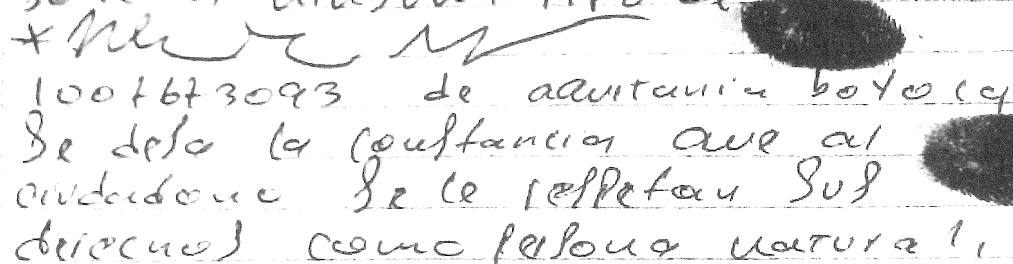 1007673093 de aquitania boyaca
Se deja la constancia que al
ciudadano se le respetan sus
derechos como persona natural,